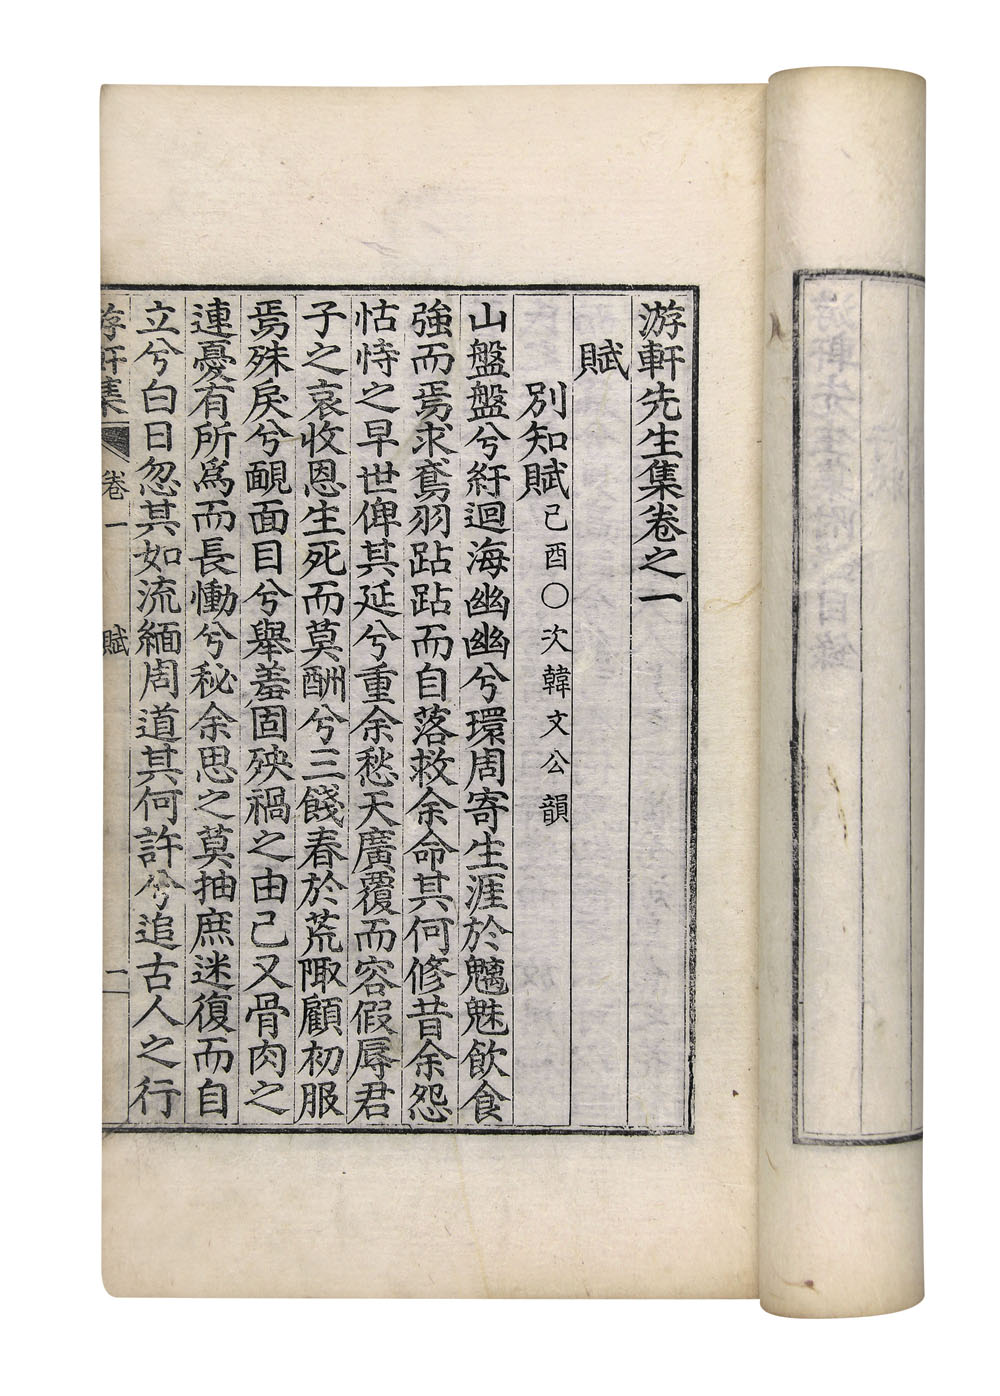 游軒先生集卷之一
賦
別知賦 己酉○次韓文公韻
山盤盤兮紆迴海幽幽兮環周寄生涯於魑魅飲食
強而焉求鳶羽跕跕而自落救余命其何修昔余怨
怙恃之早世俾其延兮重余愁天廣覆而容假辱君
子之哀收恩生死而莫酬兮三餞春於荒陬顧初服
焉殊戾兮靦面目兮舉羞固殃禍之由己又骨肉之
連憂有所爲而長慟兮秘余思之莫抽庶迷復而自
立兮白日忽其如流緬周道其何許兮追古人之行
游軒集 卷一 賦 一